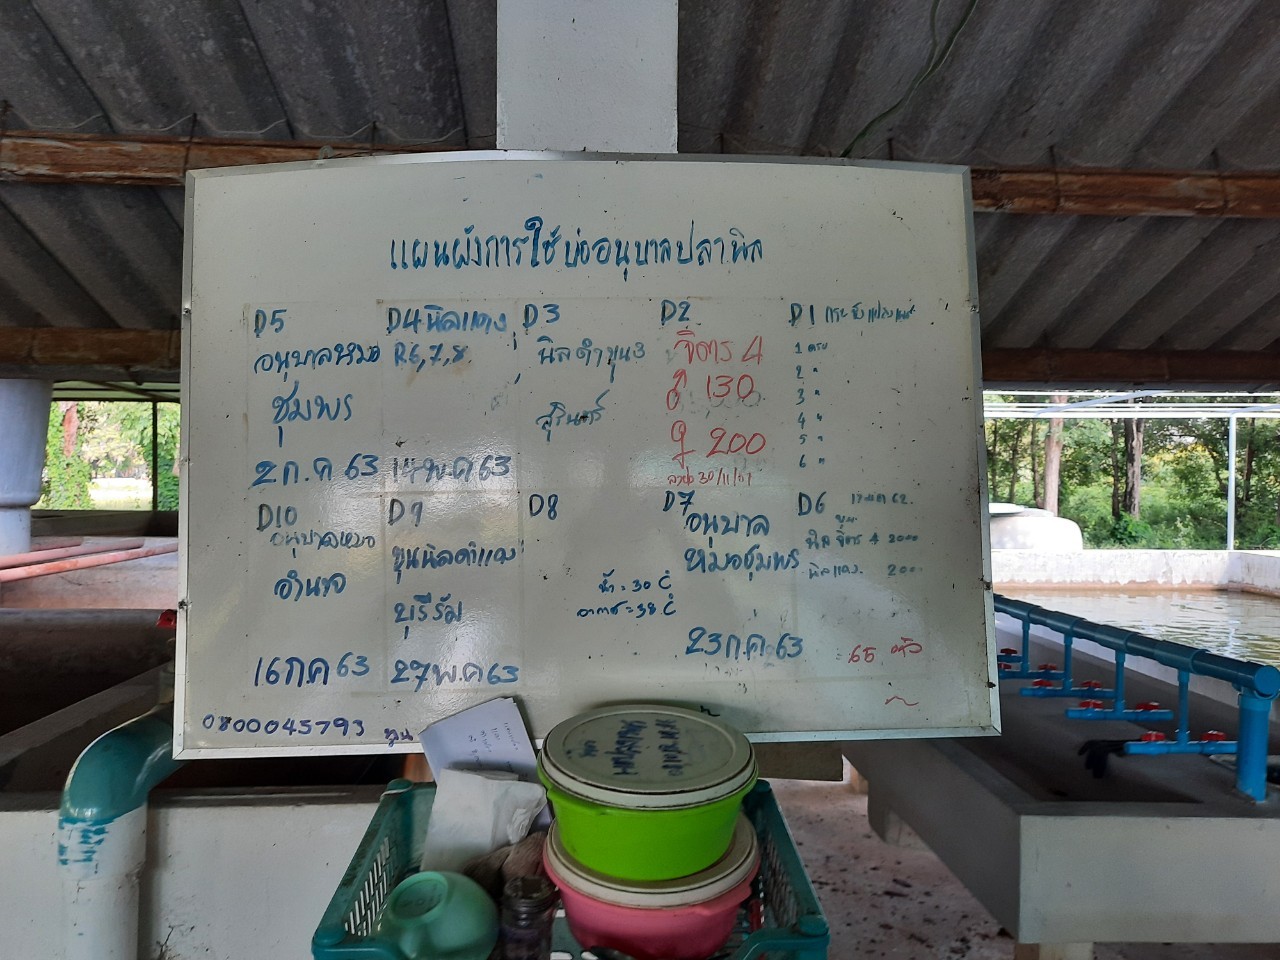 แผนผังการใช้บ่ออนุบาลปลานิล
D5
อนุบาลหมอ
ชุมพร
2 ก.ค 63
D4 นิลแดง
R6,7,8.
14 พ.ค 63
D3
นิลดำขุน3
สุรินทร์
D2
จิตร 4
130
200
30/11/
D1
1 ครอบ
2 "
3 "
4 "
5 "
6 "
D10
อนุบาลหมอ
อำนาจ
16 ก.ค 63
D9
ขุนนิลดำแดง
บุรีรัม
27 พ.ค 63
D8
น้ำ = 30 C
อากาศ = 38 C
D7
อนุบาล
หมอชุมพร
23 ก.ค. 63
D6 62.
นิลจิตร 4 2000
นิลแดง. 200
65 ตัว
0800045793